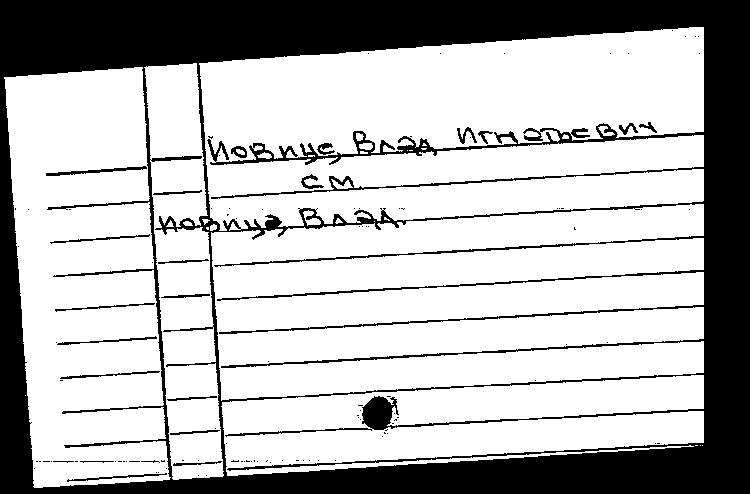 Йовице, Влад Игнатьевич
см.
Йовице, Влад.